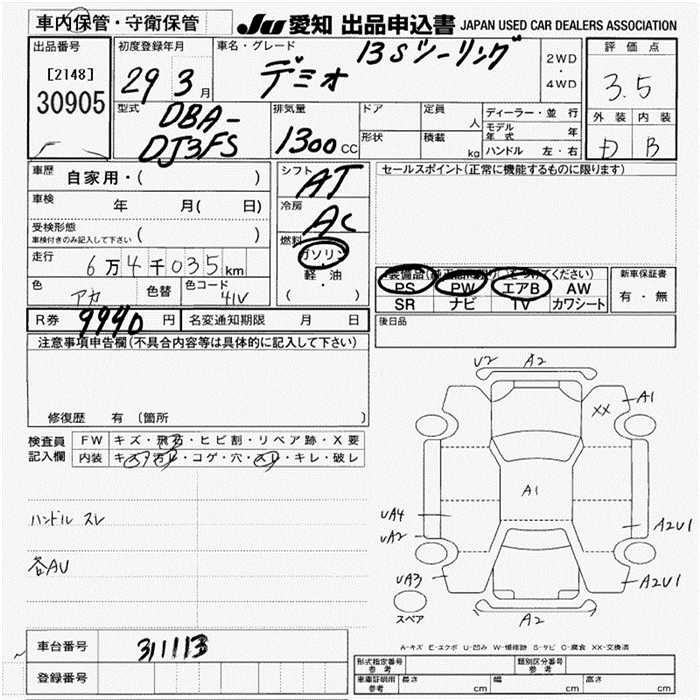 車内保管・守衛保管
JU 愛知 出品申込書 JAPAN USED CAR DEALERS ASSOCIATION
出品番号
[2148]
30905
初度登録年月
29 3月
車名・グレード
デミオ 13Sツーリング
2WD
・
4WD
評価点
3.5
外装 内装
D B
型式
DBA-
DJ3FS
排気量
1300 CC
ドア
形状
定員 人
積載 kg
ディーラー・並行
モデル年式 年
ハンドル 左・右
車歴 自家用・( )
車検 年 月( 日)
受検形態
車検付きのみ記入して下さい ( )
走行 6万4千035km
色 アカ
色替
色コード 41V
シフト AT
冷房 AC
燃料
ガソリン
・
軽・油
( )
セールスポイント(正常に機能するものに限ります)
PS PW エアB AW
SR ナビ TV カワシート
新車保証書
有・無
R券 9990円
名変通知期限 月 日
後日品
注意事項申告欄(不具合内容等は具体的に記入して下さい)
修復歴 有 〔箇所 〕
検査員
記入欄
FW キズ・飛石・ヒビ割・リペア跡・X要
内装 キズ・汚レ・コゲ・穴・スレ・キレ・破レ
ハンドル スレ
各AU
U2 A2
A1
XX
A1
UA4
UA2
UA3
A2U1
A2U1
A2
スペア
A-キズ E-エクボ U-凹み W-補修跡 S-サビ C-腐食 XX-交換済
車台番号 311113
登録番号
形式指定番号
参考
類別区分番号
参考
車庫証明用
参考
長さ cm 幅 cm 高さ cm